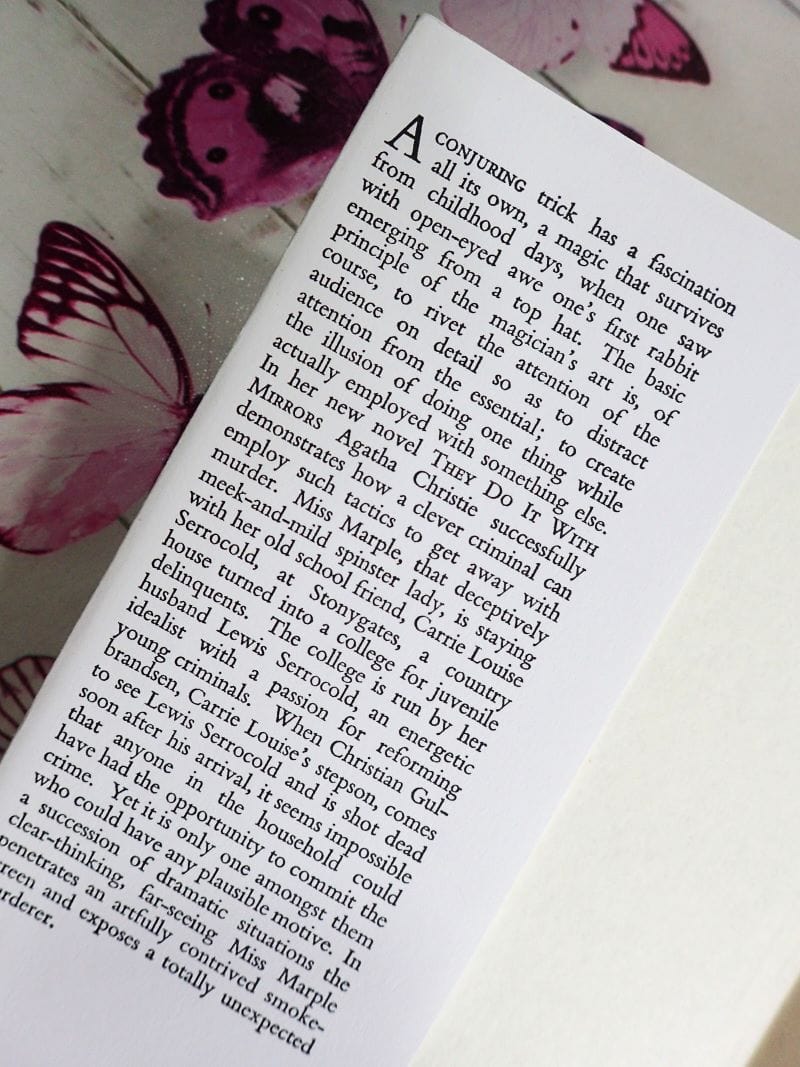 A CONJURING trick has a fascination
all its own, a magic that survives
from childhood days, when one saw
with open-eyed awe one's first rabbit
emerging from a top hat. The basic
principle of the magician's art is, of
course, to rivet the attention of the
audience on detail so as to distract
attention from the essential; to create
the illusion of doing one thing while
actually employed with something else.
In her new novel THEY DO IT WITH
MIRRORS Agatha Christie successfully
demonstrates how a clever criminal can
employ such tactics to get away with
murder. Miss Marple, that deceptively
meek-and-mild spinster lady, is staying
with her old school friend, Carrie Louise
Serrocold, at Stonygates, a country
house turned into a college for juvenile
delinquents. The college is run by her
husband Lewis Serrocold, an energetic
idealist with a passion for reforming
young criminals. When Christian Gul-
brandsen, Carrie Louise's stepson, comes
to see Lewis Serrocold and is shot dead
soon after his arrival, it seems impossible
that anyone in the household could
have had the opportunity to commit the
crime. Yet it is only one amongst them
who could have any plausible motive. In
a succession of dramatic situations the
clear-thinking, far-seeing Miss Marple
penetrates an artfully contrived smoke-
reen and exposes a totally unexpected
rderer.